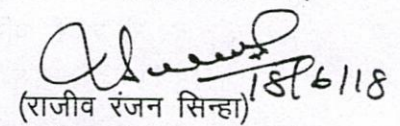 18/6/18
(राजीव रंजन सिन्हा)